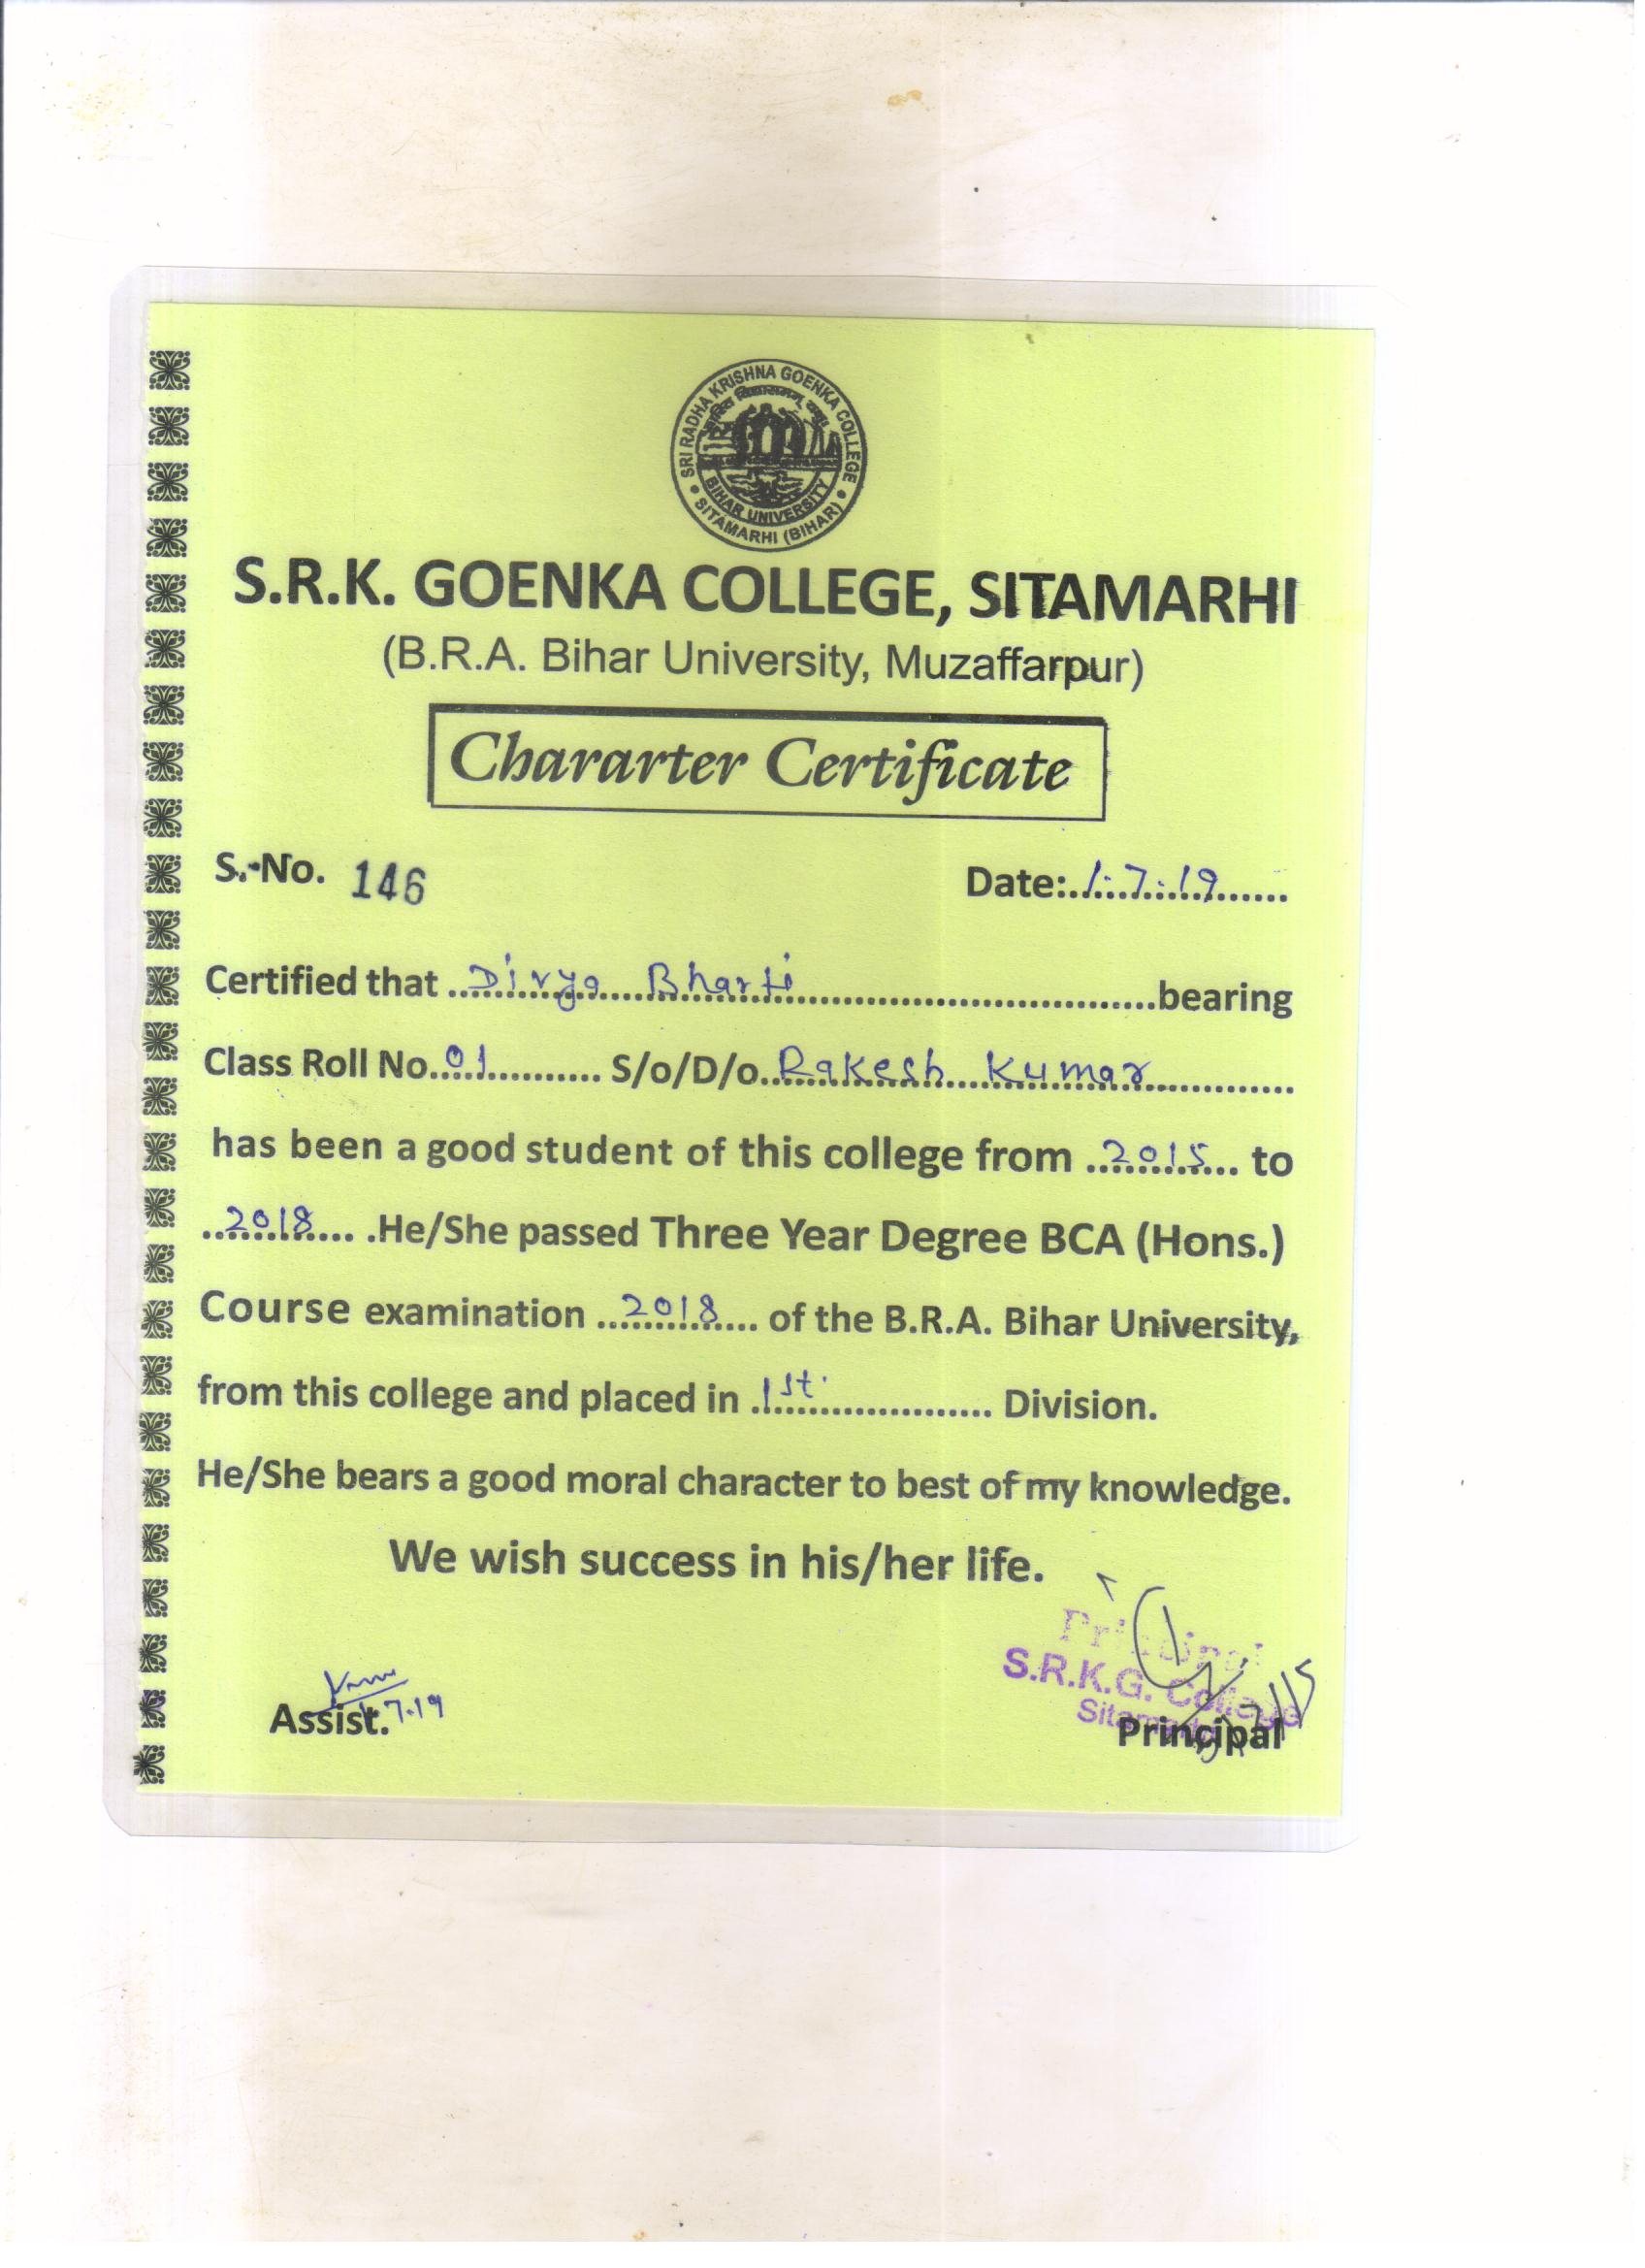 SRI RADHA KRISHNA GOENKA COLLEGE
BIHAR UNIVERSITY
• SITAMARHI (BIHAR) •
S.R.K. GOENKA COLLEGE, SITAMARHI
(B.R.A. Bihar University, Muzaffarpur)
Chararter Certificate
S.-No. 146 Date:..1.7.19......
Certified that ..Divya Bharti..............................bearing
Class Roll No..01.......... S/o/D/o..Rakesh Kumar..............
has been a good student of this college from ..2015... to
..2018.... .He/She passed Three Year Degree BCA (Hons.)
Course examination ..2018.... of the B.R.A. Bihar University,
from this college and placed in .1st................... Division.
He/She bears a good moral character to best of my knowledge.
We wish success in his/her life.
Principal
S.R.K.G. College
Assist. 7.19
Principal